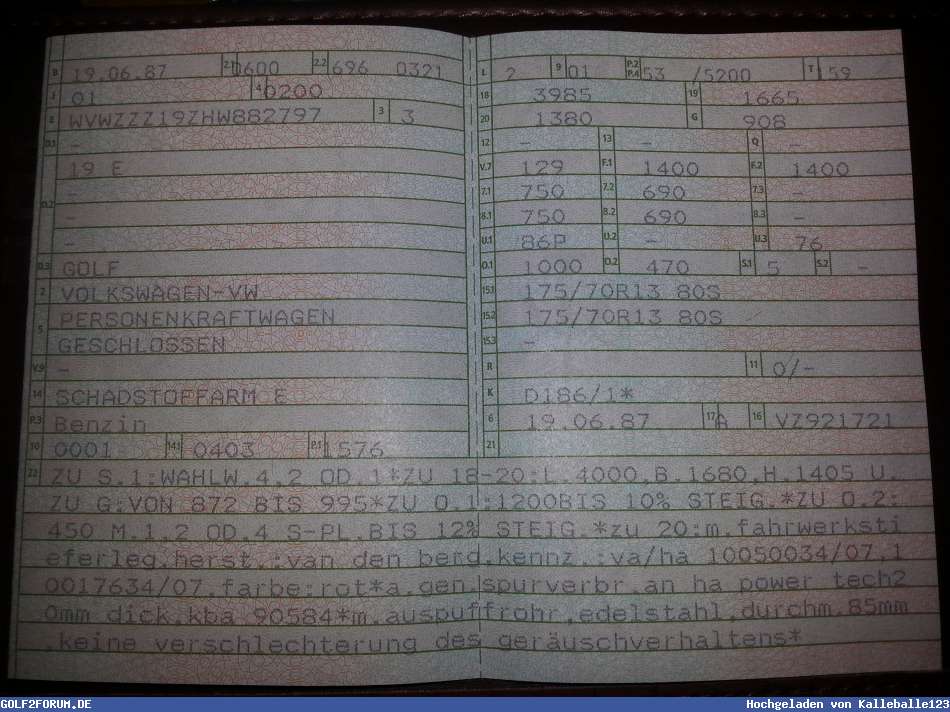 B 19.06.87 2.1 0600 2.2 696 0321
J 01 4 0200
E WVWZZZ19ZHW882797 3 3
D.1 -
19 E
-
D.2 -
D.3 GOLF
2 VOLKSWAGEN-VW
5 PERSONENKRAFTWAGEN
GESCHLOSSEN
V.9 -
14 SCHADSTOFFARM E
P.3 Benzin
10 0001 14.1 0403 P.1 1576
L 2 9 01 P.2 P.4 53 /5200 T 159
18 3985 19 1665
20 1380 G 908
12 - 13 - Q -
V.7 129 F.1 1400 F.2 1400
7.1 750 7.2 690 7.3 -
8.1 750 8.2 690 8.3 -
U.1 86P U.2 - U.3 76
O.1 1000 O.2 470 S.1 5 S.2 -
15.1 175/70R13 80S
15.2 175/70R13 80S
15.3 -
R 11 0/-
K D186/1*
6 19.06.87 17 A 16 VZ921721
21
22 ZU S.1:WAHLW.4,2 OD.1*ZU 18-20:L.4000,B.1680,H.1405 U.
ZU G:VON 872 BIS 995*ZU O.1:1200BIS 10% STEIG.*ZU O.2:
450 M.1,2 OD.4 S-PL.BIS 12% STEIG.*zu 20:m.fahrwerksti
eferleg.herst.:van den berg,kennz.:va/ha 10050034/07,1
0017634/07,farbe:rot*a.gen.spurverbr an ha power tech2
0mm dick,kba 90584*m.auspuffrohr,edelstahl,durchm.85mm
,keine verschlechterung des geräuschverhaltens*
GOLF2FORUM.DE
Hochgeladen von Kalleballe123